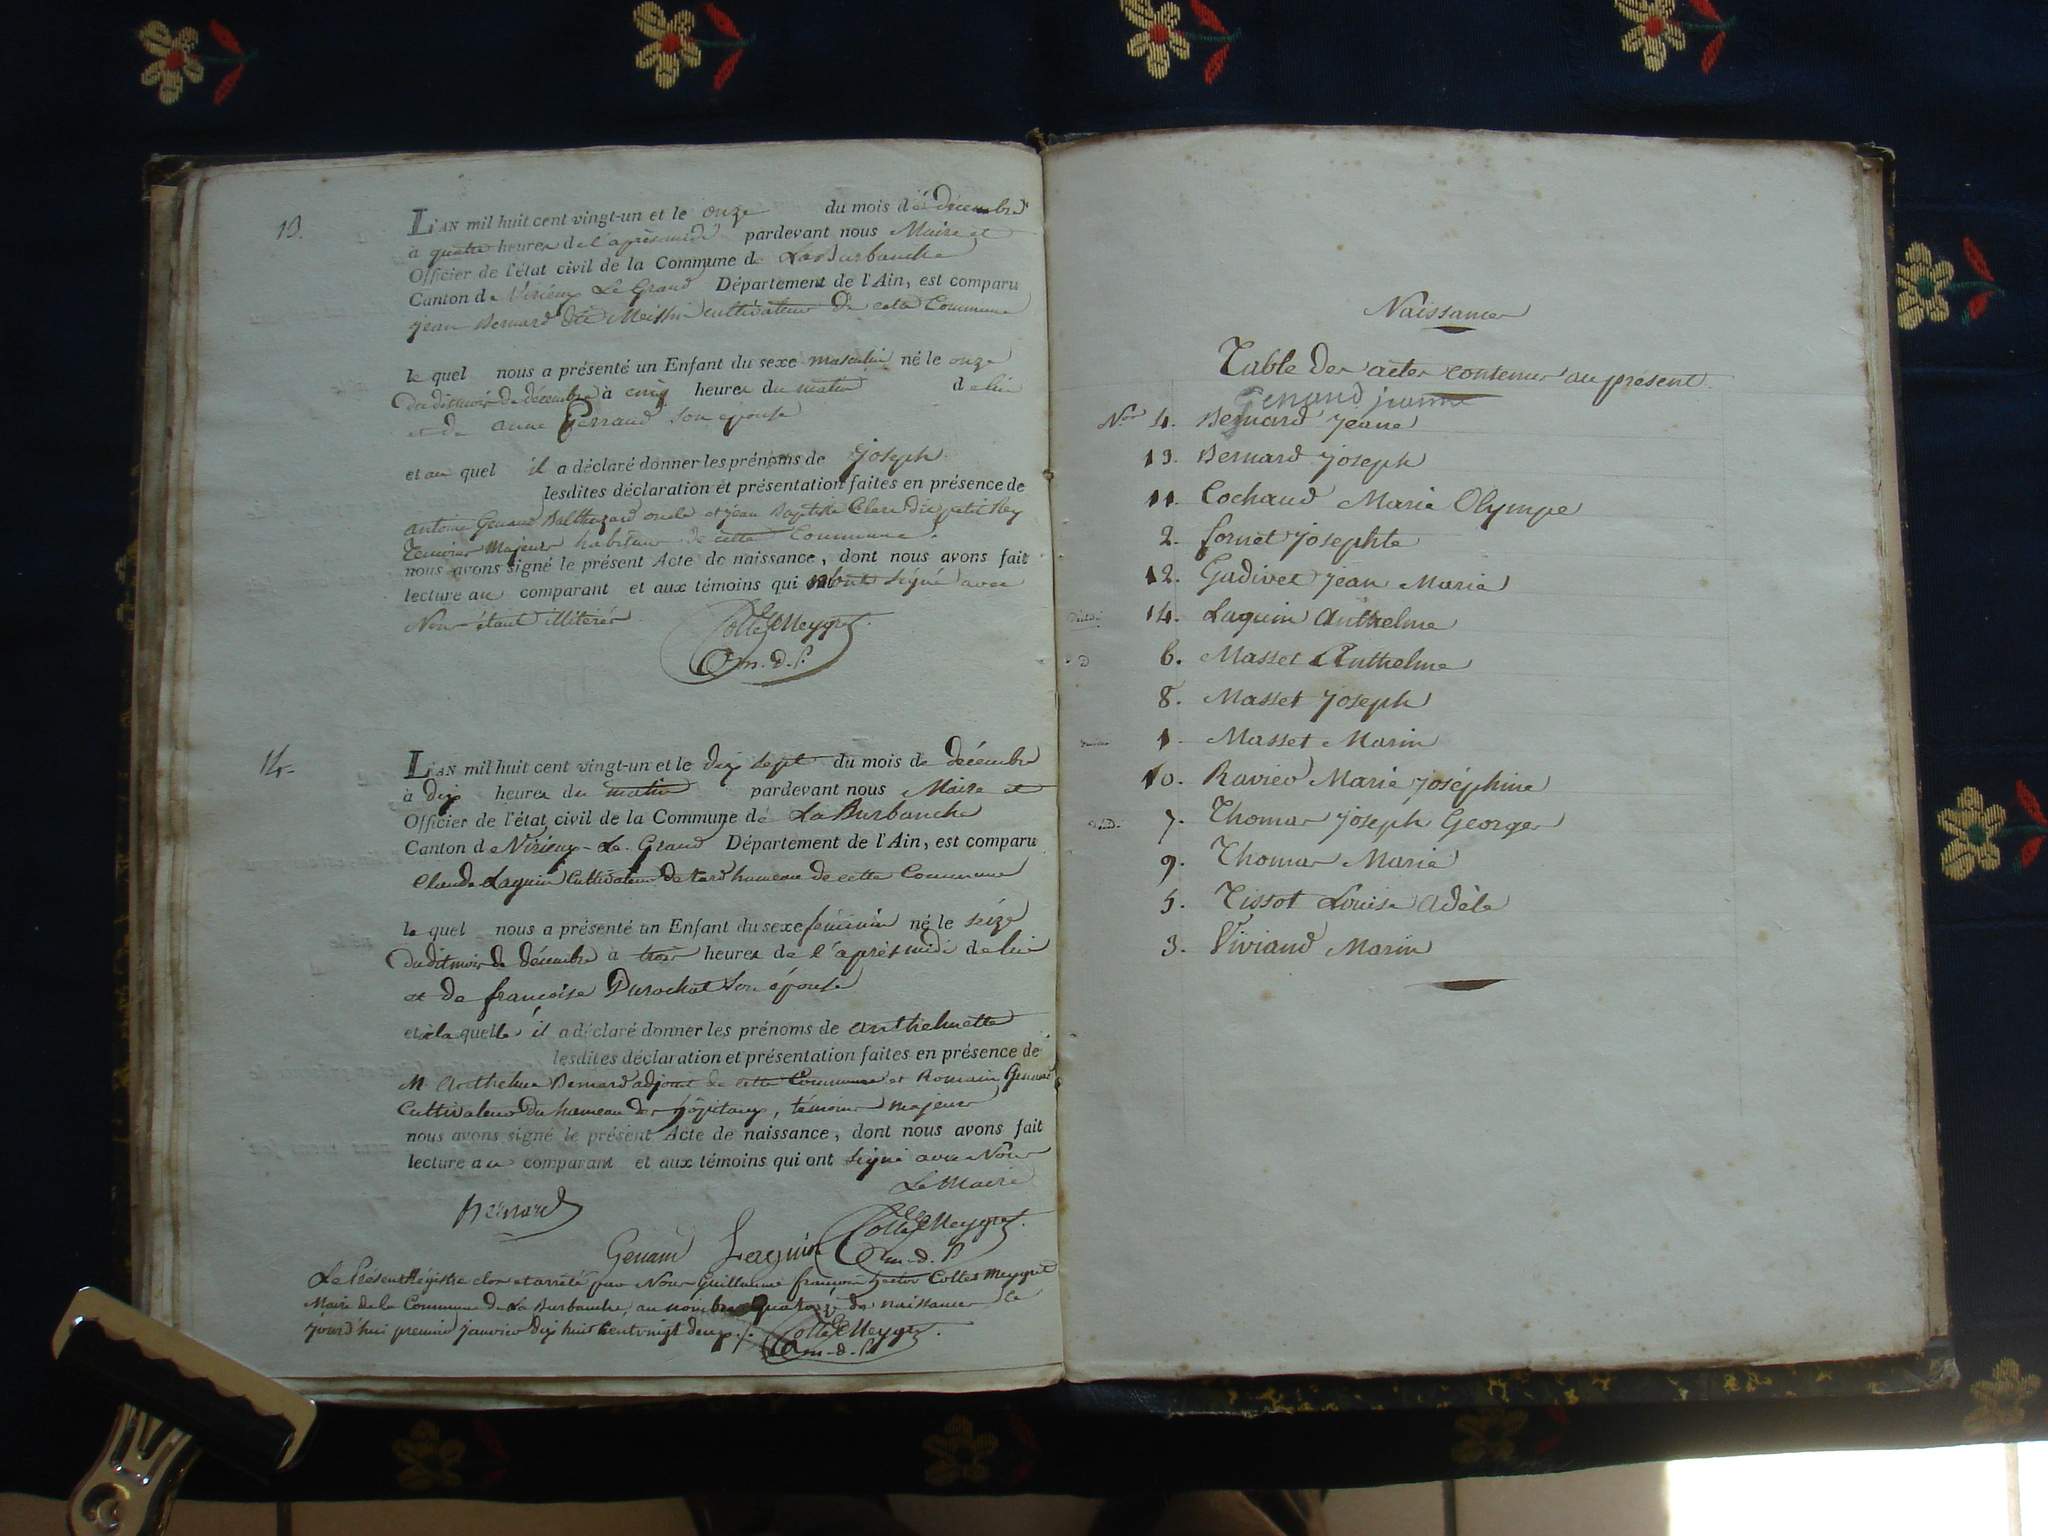 13.
L'AN mil huit cent vingt-un et le onze du mois de décembre
à quatre heures de l'après midi pardevant nous Maire et
Officier de l'état civil de la Commune de La Burbanche
Canton de Virieux Le Grand Département de l'Ain, est comparu
jean Bernard dit Meissin cultivateur de cette Commune
le quel nous a présenté un Enfant du sexe masculin né le onze
dudit mois de décembre à cinq heures du matin de lui
et de anne Gerraud son epouse
et au quel il a déclaré donner les prénoms de joseph
lesdites déclaration et présentation faites en présence de
antoine Genaud Balthazard oncle et jean Baptiste Clerc dit petit Rey
temoins majeurs habitans de cette Commune.
nous avons signé le présent Acte de naissance, dont nous avons fait
lecture au comparant et aux témoins qui n'ont signé avec
Nous étant illitérés
Collet Meygret
m. d. l.
14.
L'AN mil huit cent vingt-un et le dix sept du mois de décembre
à dix heures du matin pardevant nous Maire et
Officier de l'état civil de la Commune de La Burbanche
Canton de Virieux-Le-Grand Département de l'Ain, est comparu
Claude Laguin Cultivateur de tard hameau de cette Commune
le quel nous a présenté un Enfant du sexe féminin né le seize
dudit mois de décembre à trois heures de l'après midi de lui
et de françoise Durochat son épouse
et à la quelle il a déclaré donner les prénoms de anthelmette
lesdites déclaration et présentation faites en présence de
M. Anthelme Bernard adjoint de cette Commune et Romain Genand
Cultivateur du hameau des hôpitaux, témoins majeurs
nous avons signé le présent Acte de naissance, dont nous avons fait
lecture au comparant et aux témoins qui ont signé avec Nous
Le Maire
Bernard
Genand Laguin Collet Meygret
m. d. l.
Le Présent Régistre clos et arrêté par Nous Guillaume françois hector Collet Meygret
Maire de la Commune de La Burbanche, au nombre quatorze de naissances ce
jourd'hui premier janvier dix huit cent vingt deux ./. Collet Meygret
m. d. l.
Naissances
Table des actes contenus au présent.
Genand jeanne
Nos 4. Bernard jeane
13. Bernard joseph
11. Cochaud Marie Olympe
2. fornet josephte
12. Gudivet jean Marie
14. Laguin Anthelme
d 6. Masset Anthelme
8. Masset joseph
1. Masset Marin
10. Ravier Marie joséphine
7. Thomas joseph Georges
9. Thomas Marie
5. Tissot Louise adèle
3. Viviand Marin